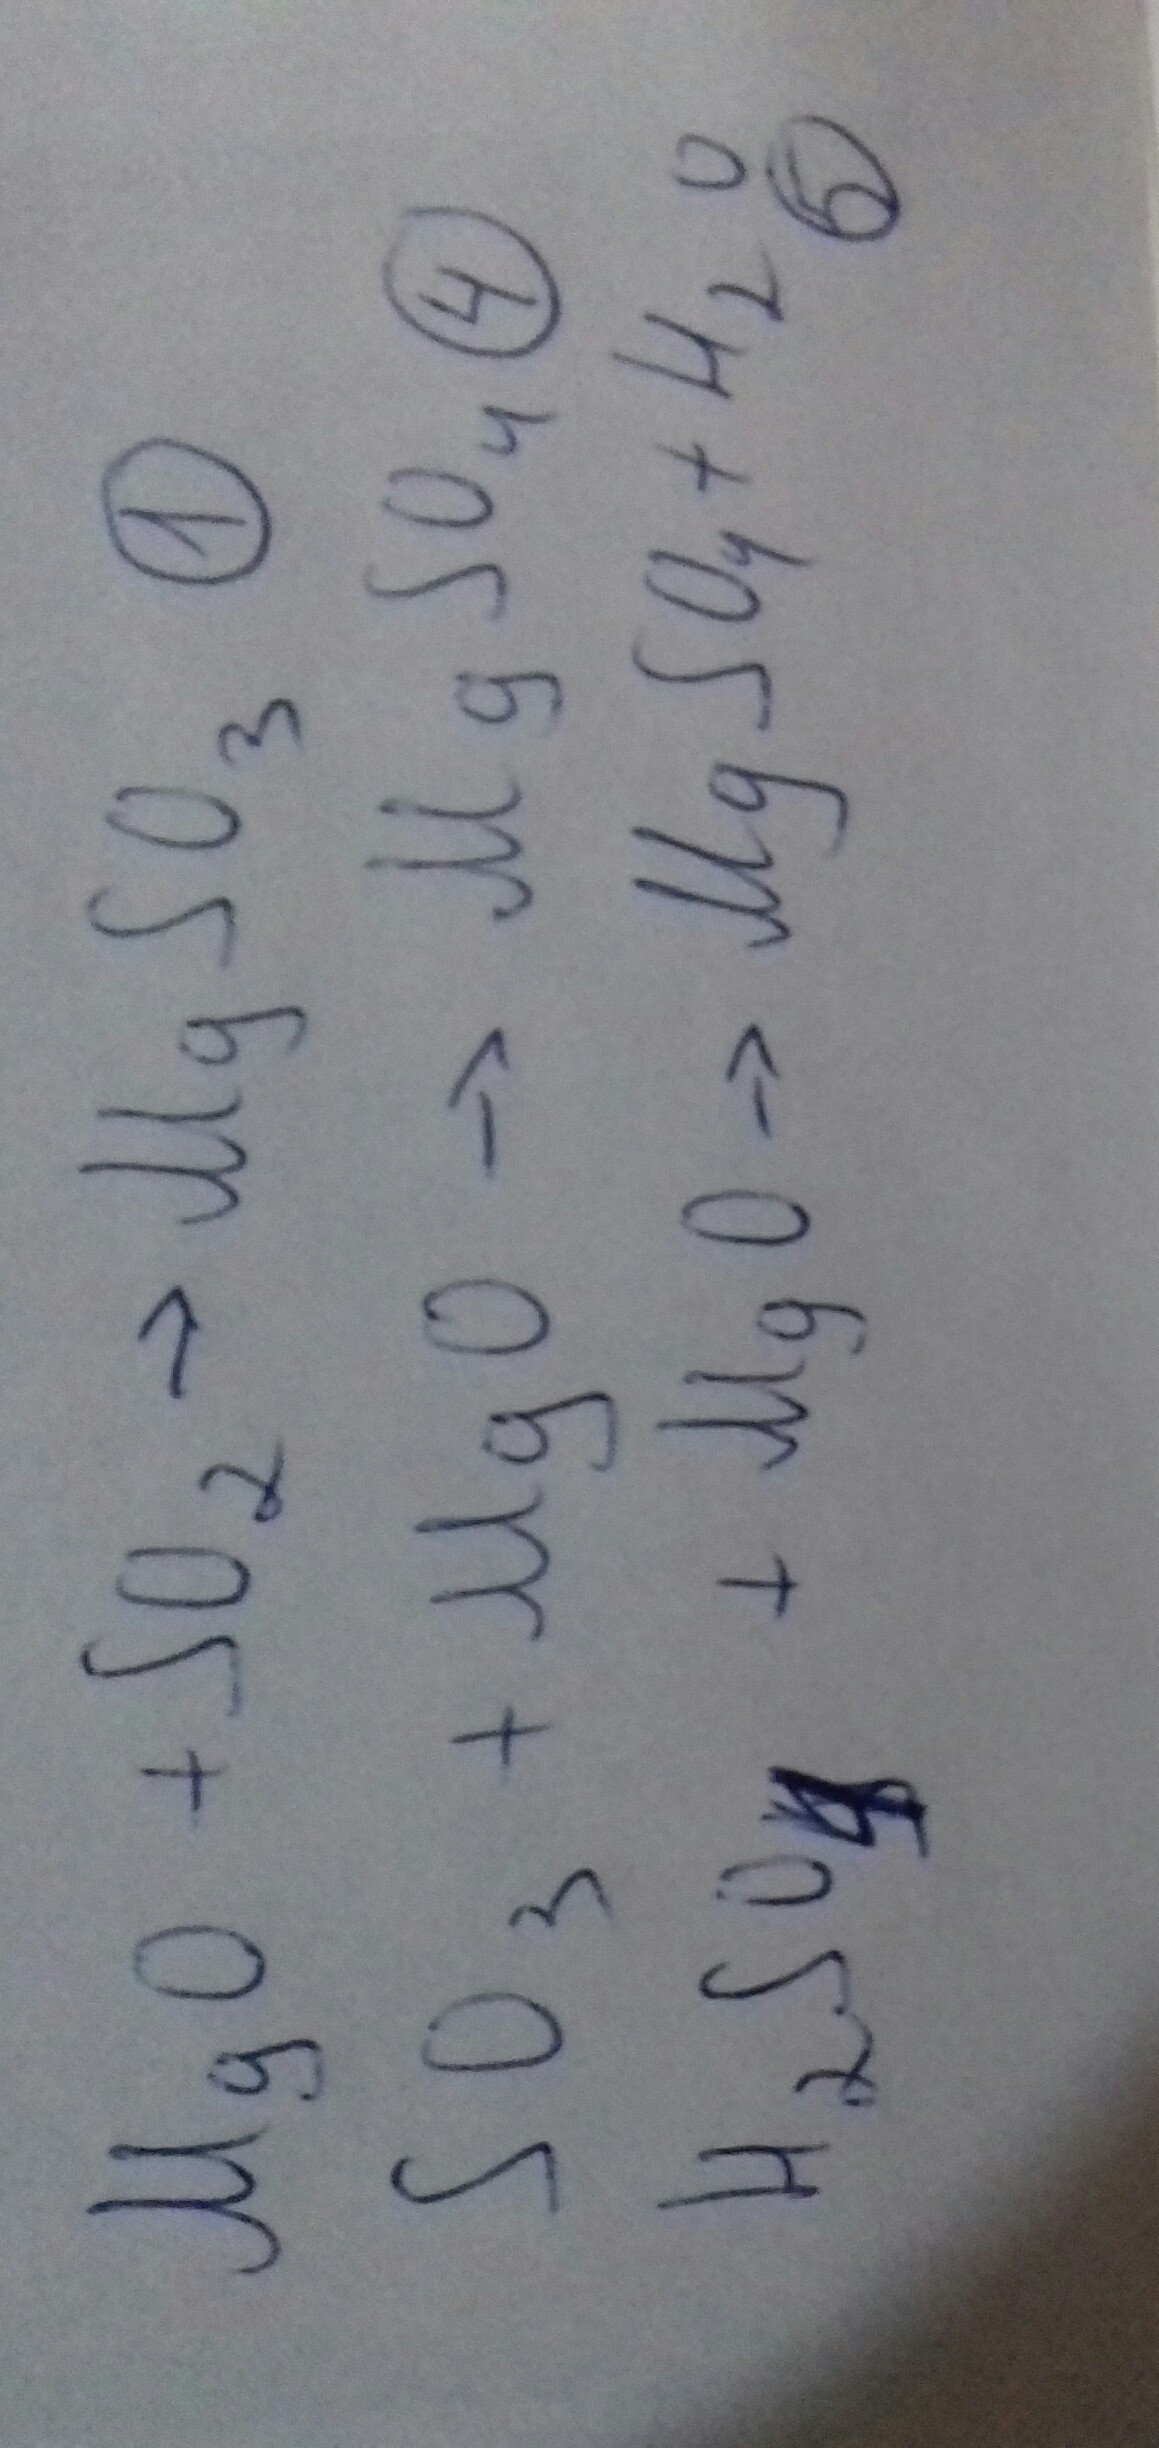 MgO + SO₂ → MgSO₃ ①
SO₃ + MgO → MgSO₄ ④
H₂SO₄ + MgO → MgSO₄ + H₂O ⑤